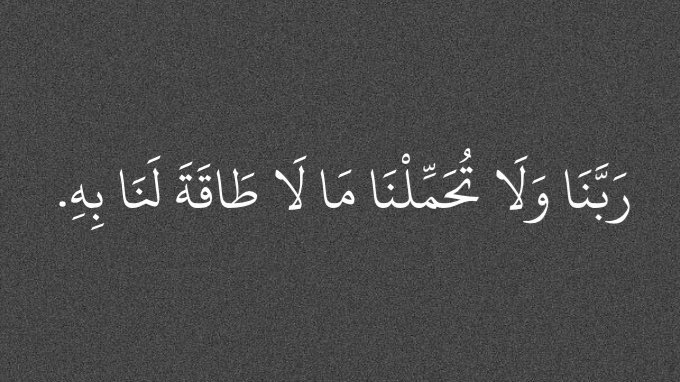 رَبَّنَا وَلَا تُحَمِّلْنَا مَا لَا طَاقَةَ لَنَا بِهِ.